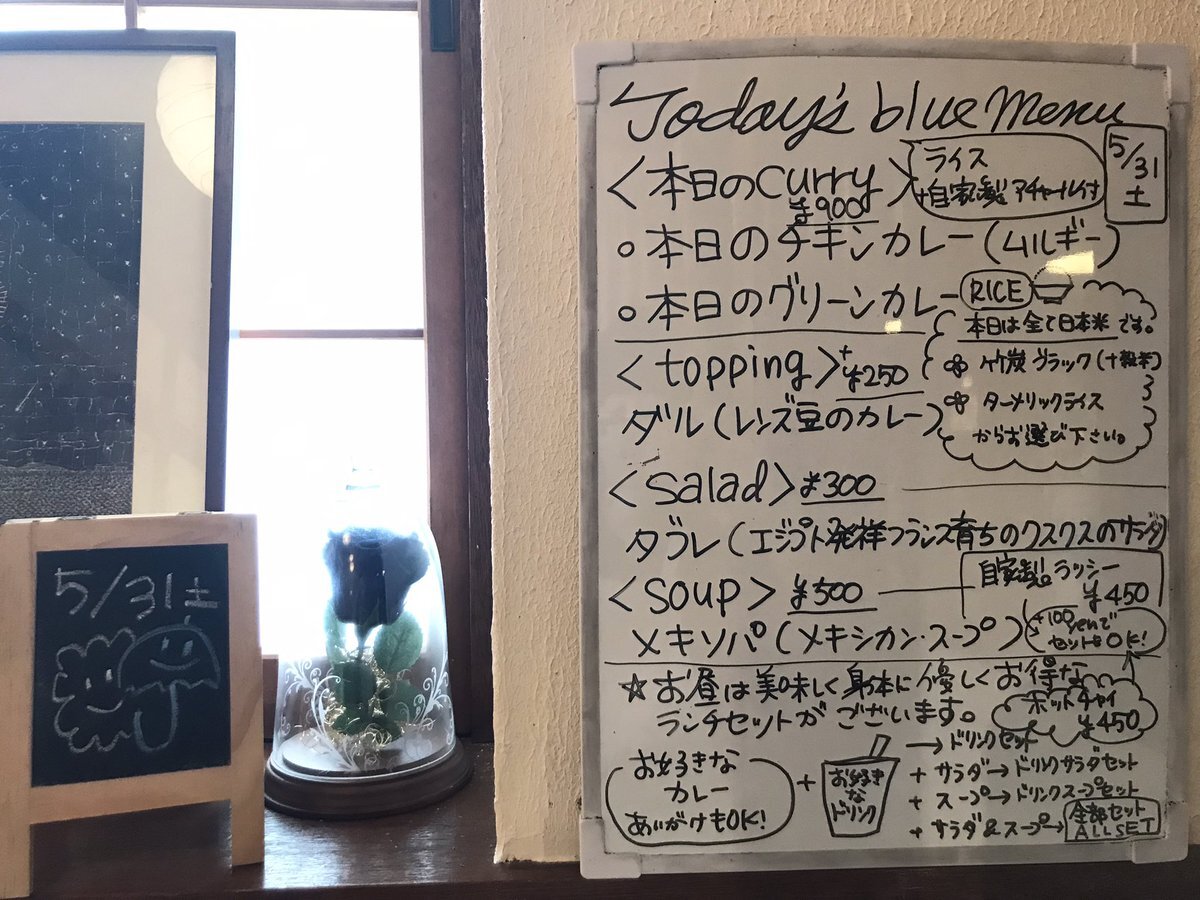 5/31土
Today's blue Menu
5/31
土
<本日のcurry>
¥900
ライス
+自家製アチャール付
○本日のチキンカレー(ムルギー)
○本日のグリーンカレー
RICE
本日は全て日本米です。
竹炭ブラック(十穀米)
ターメリックライス
からお選び下さい。
<topping>+¥250
ダル(レンズ豆のカレー)
<salad>¥300
タブレ(エジプト発祥フランス育ちのクスクスのサラダ)
<soup>¥500
自家製ラッシー
¥450
メキソパ(メキシカン・スープ)
+100
yenで
セットもOK!
☆お昼は美味しく身体に優しくお得な
ランチセットがございます。
ホットチャイ
¥450
お好きな
カレー
あいがけもOK!
+
お好き
な
ドリンク
→ドリンクセット
+サラダ→ドリンクサラダセット
+スープ→ドリンクスープセット
+サラダ&スープ→全部セット
ALL SET